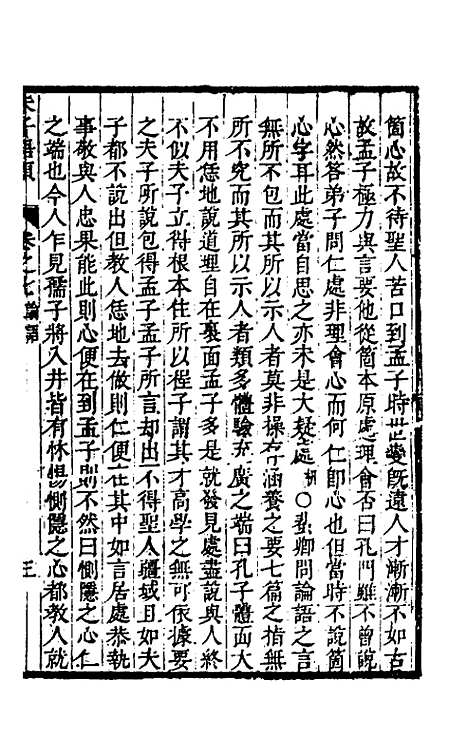 箇心故不待聖人苦口到孟子時世變既遠人才漸漸不如古
故孟子極力與言要他從箇本原處理會否曰孔門雖不曾說
心然答弟子問仁處非理會心而何仁即心也但當時不說箇
心字耳此處當自思之亦未是大疑處 ○ 卿問論語之言
無所不包而其所以示人者莫非操存涵養之要七篇之指無
所不究而其所以示人者類多體驗充廣之端曰孔子體面大
不用恁地說道理自在裏面孟子多是就發見處盡說與人終
不似夫子立得根本住所以程子謂其才高學之無可依據要
之夫子所說包得孟子孟子所言却出不得聖人疆域且如夫
子都不說出但教人恁地去做則仁便在其中如言居處恭執
事敬與人忠果能此則心便在到孟子則不然曰惻隱之心仁
之端也今人乍見孺子將入井皆有怵惕惻隱之心都教人就
朱子語類 卷之 論語 三